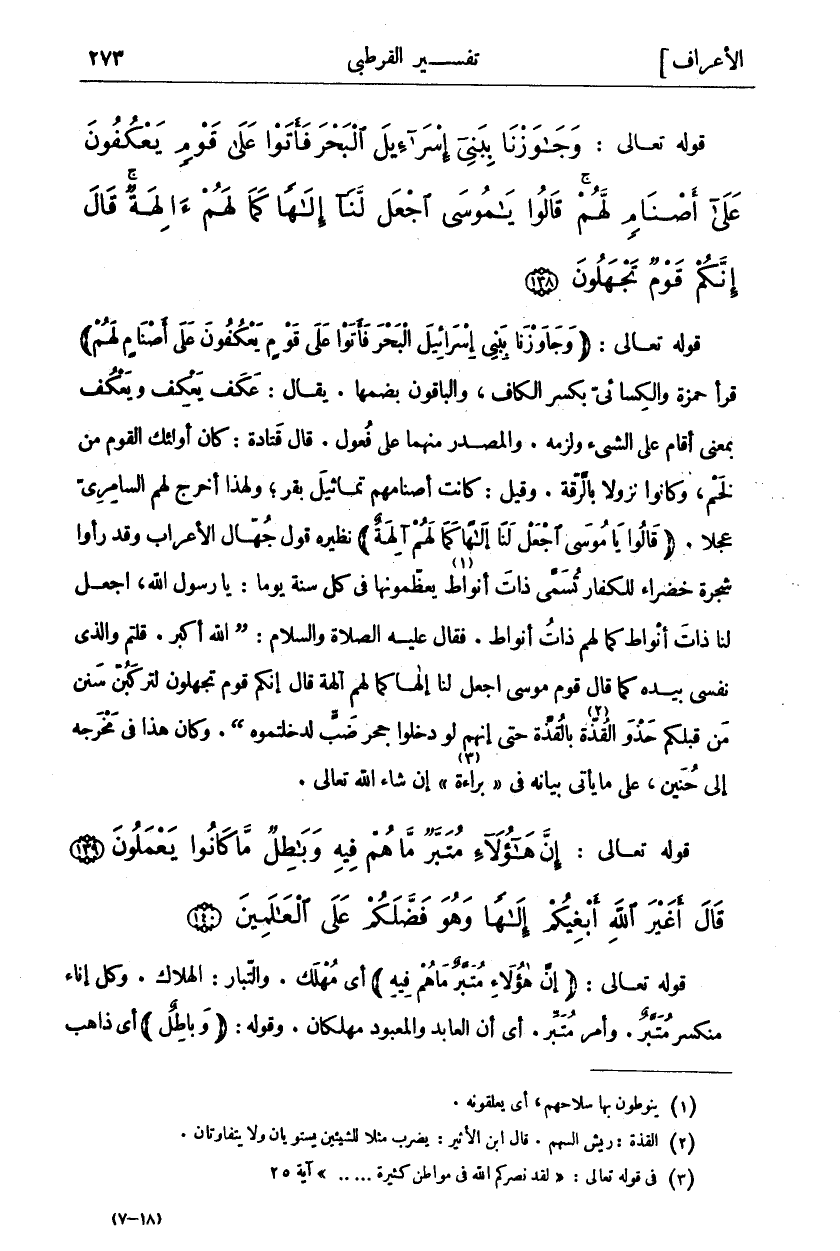 الأعراف] تفســـير القرطبى ٢٧٣
قوله تعـالى : وَجَٰوَزْنَا بِبَنِىٓ إِسْرَٰٓءِيلَ ٱلْبَحْرَ فَأَتَوْا۟ عَلَىٰ قَوْمٍ يَعْكُفُونَ
عَلَىٰٓ أَصْنَامٍ لَّهُمْ ۚ قَالُوا۟ يَٰمُوسَى ٱجْعَل لَّنَآ إِلَٰهًا كَمَا لَهُمْ ءَالِهَةٌ ۚ قَالَ
إِنَّكُمْ قَوْمٌ تَجْهَلُونَ ﴿١٣٨﴾
قوله تعـالى : ﴿ وَجَاوَزْنَا بِبَنِي إِسْرَائِيلَ الْبَحْرَ فَأَتَوْا عَلَى قَوْمٍ يَعْكُفُونَ عَلَى أَصْنَامٍ لَهُمْ ﴾
قرأ حمزة والكسائىّ بكسر الكاف ، والباقون بضمها . يقـال : عَكَف يَعْكِف ويَعْكُف
بمعنى أقام على الشىء ولزمه . والمصـدر منهما على فُعول . قال قَتادة : كان أولئك القوم من
لَخْم، وكانوا نزولا بالرَّقّة . وقيل : كانت أصنامهم تمـاثيلَ بقر ؛ ولهذا أخرج لهم السامرِىّ
عجلا . ﴿ قَالُوا يَا مُوسَى اجْعَلْ لَنَا إِلَٰهًا كَمَا لَهُمْ آلِهَةٌ ﴾ نظيره قول جُهّـال الأعراب وقد رأوا
شجرة خضراء للكفار تُسَمَّى ذاتَ أنواط (١) يعظّمونها فى كل سنة يوما : يا رسول الله، اجعـل
لنا ذاتَ أنْواط كما لهم ذاتُ أنواط . فقال عليـه الصلاة والسلام : ” الله أكبر . قلتم والذى
نفسى بيـده كما قال قوم موسى اجعل لنا إلٰهـا كما لهم آلهة قال إنكم قوم تجهلون لتركبُنّ سَنن
مَن قبلكم حَذْوَ القُذّة (٢) بالقُذّة حتى إنهم لو دخلوا جحر ضَبٍّ لدخلتموه “ . وكان هذا فى مَخْرَجه
إلى حُنين ، على ما يأتى بيانه فى « براءة (٣) » إن شاء الله تعالى .
قوله تعـالى : إِنَّ هَٰٓؤُلَآءِ مُتَبَّرٌ مَّا هُمْ فِيهِ وَبَٰطِلٌ مَّا كَانُوا۟ يَعْمَلُونَ ﴿١٣٩﴾
قَالَ أَغَيْرَ ٱللَّهِ أَبْغِيكُمْ إِلَٰهًا وَهُوَ فَضَّلَكُمْ عَلَى ٱلْعَٰلَمِينَ ﴿١٤٠﴾
قوله تعـالى : ﴿ إِنَّ هَٰؤُلَاءِ مُتَبَّرٌ مَا هُمْ فِيهِ ﴾ أى مُهْلَك . والتَّبار : الهلاك . وكل إناء
منكسر مُتَبَّرٌ . وأمر مُتَبَّر . أى أن العابد والمعبود مهلكان . وقوله : ﴿ وَبَاطِلٌ ﴾ أى ذاهب
(١) ينوطون بها سلاحهم ، أى يعلقونه .
(٢) القذة : ريش السهم . قال ابن الأثير : يضرب مثلا للشيئين يستويان ولا يتفاوتان .
(٣) فى قوله تعالى : « لقد نصركم الله فى مواطن كثيرة ..... » آية ٢٥
(٧-١٨)